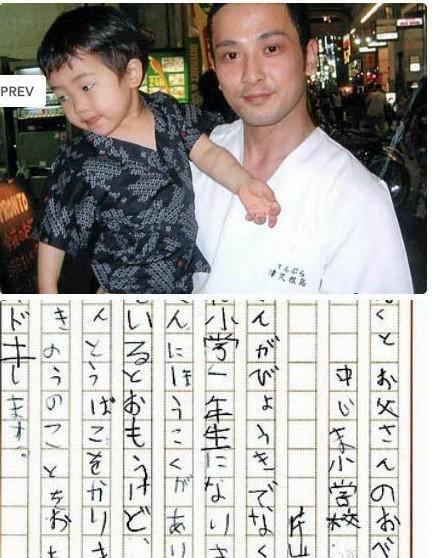 PREV
PRONTO
てんぷら
津久根島
くとお父さんのおべ
中じま小学校
片山
んがびょうきでなく
小学一年生になりま
んにほうこくがあり
いるとおもうけど、
んとうばこをかりま
きのうのことをお
ドキします。